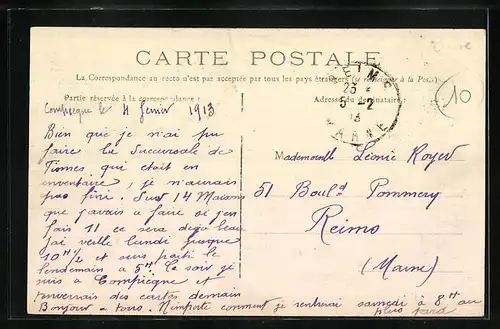 CARTE POSTALE
La Correspondance au recto n'est pas acceptée par tous les pays étrangers (se renseigner à la Poste)
Partie réservée à la correspondance
Adresse du destinataire
REIMS
23
5-2
13
MARNE
10
Compiegne le 4 fevrier 1913
Bien que je n'ai pu
faire la Succursale de
qui etait en
inventaire, je n'aurais
pas fini. Sur 14 Maisons
que j'avais a faire si j'en
fais 11 ce sera deja beau
J'ai veillé lundi jusque
10H 1/2 et suis parti le
lendemain a 5H. Ce soir je
suis a Compiegne et
enverrais des cartes demain
Bonjour a tous. N'importe comment je rentrerai samedi à 8H au
plus tard
Mademoiselle Léonie Royer
51 Boul.d Pommery
Reims
(Marne)